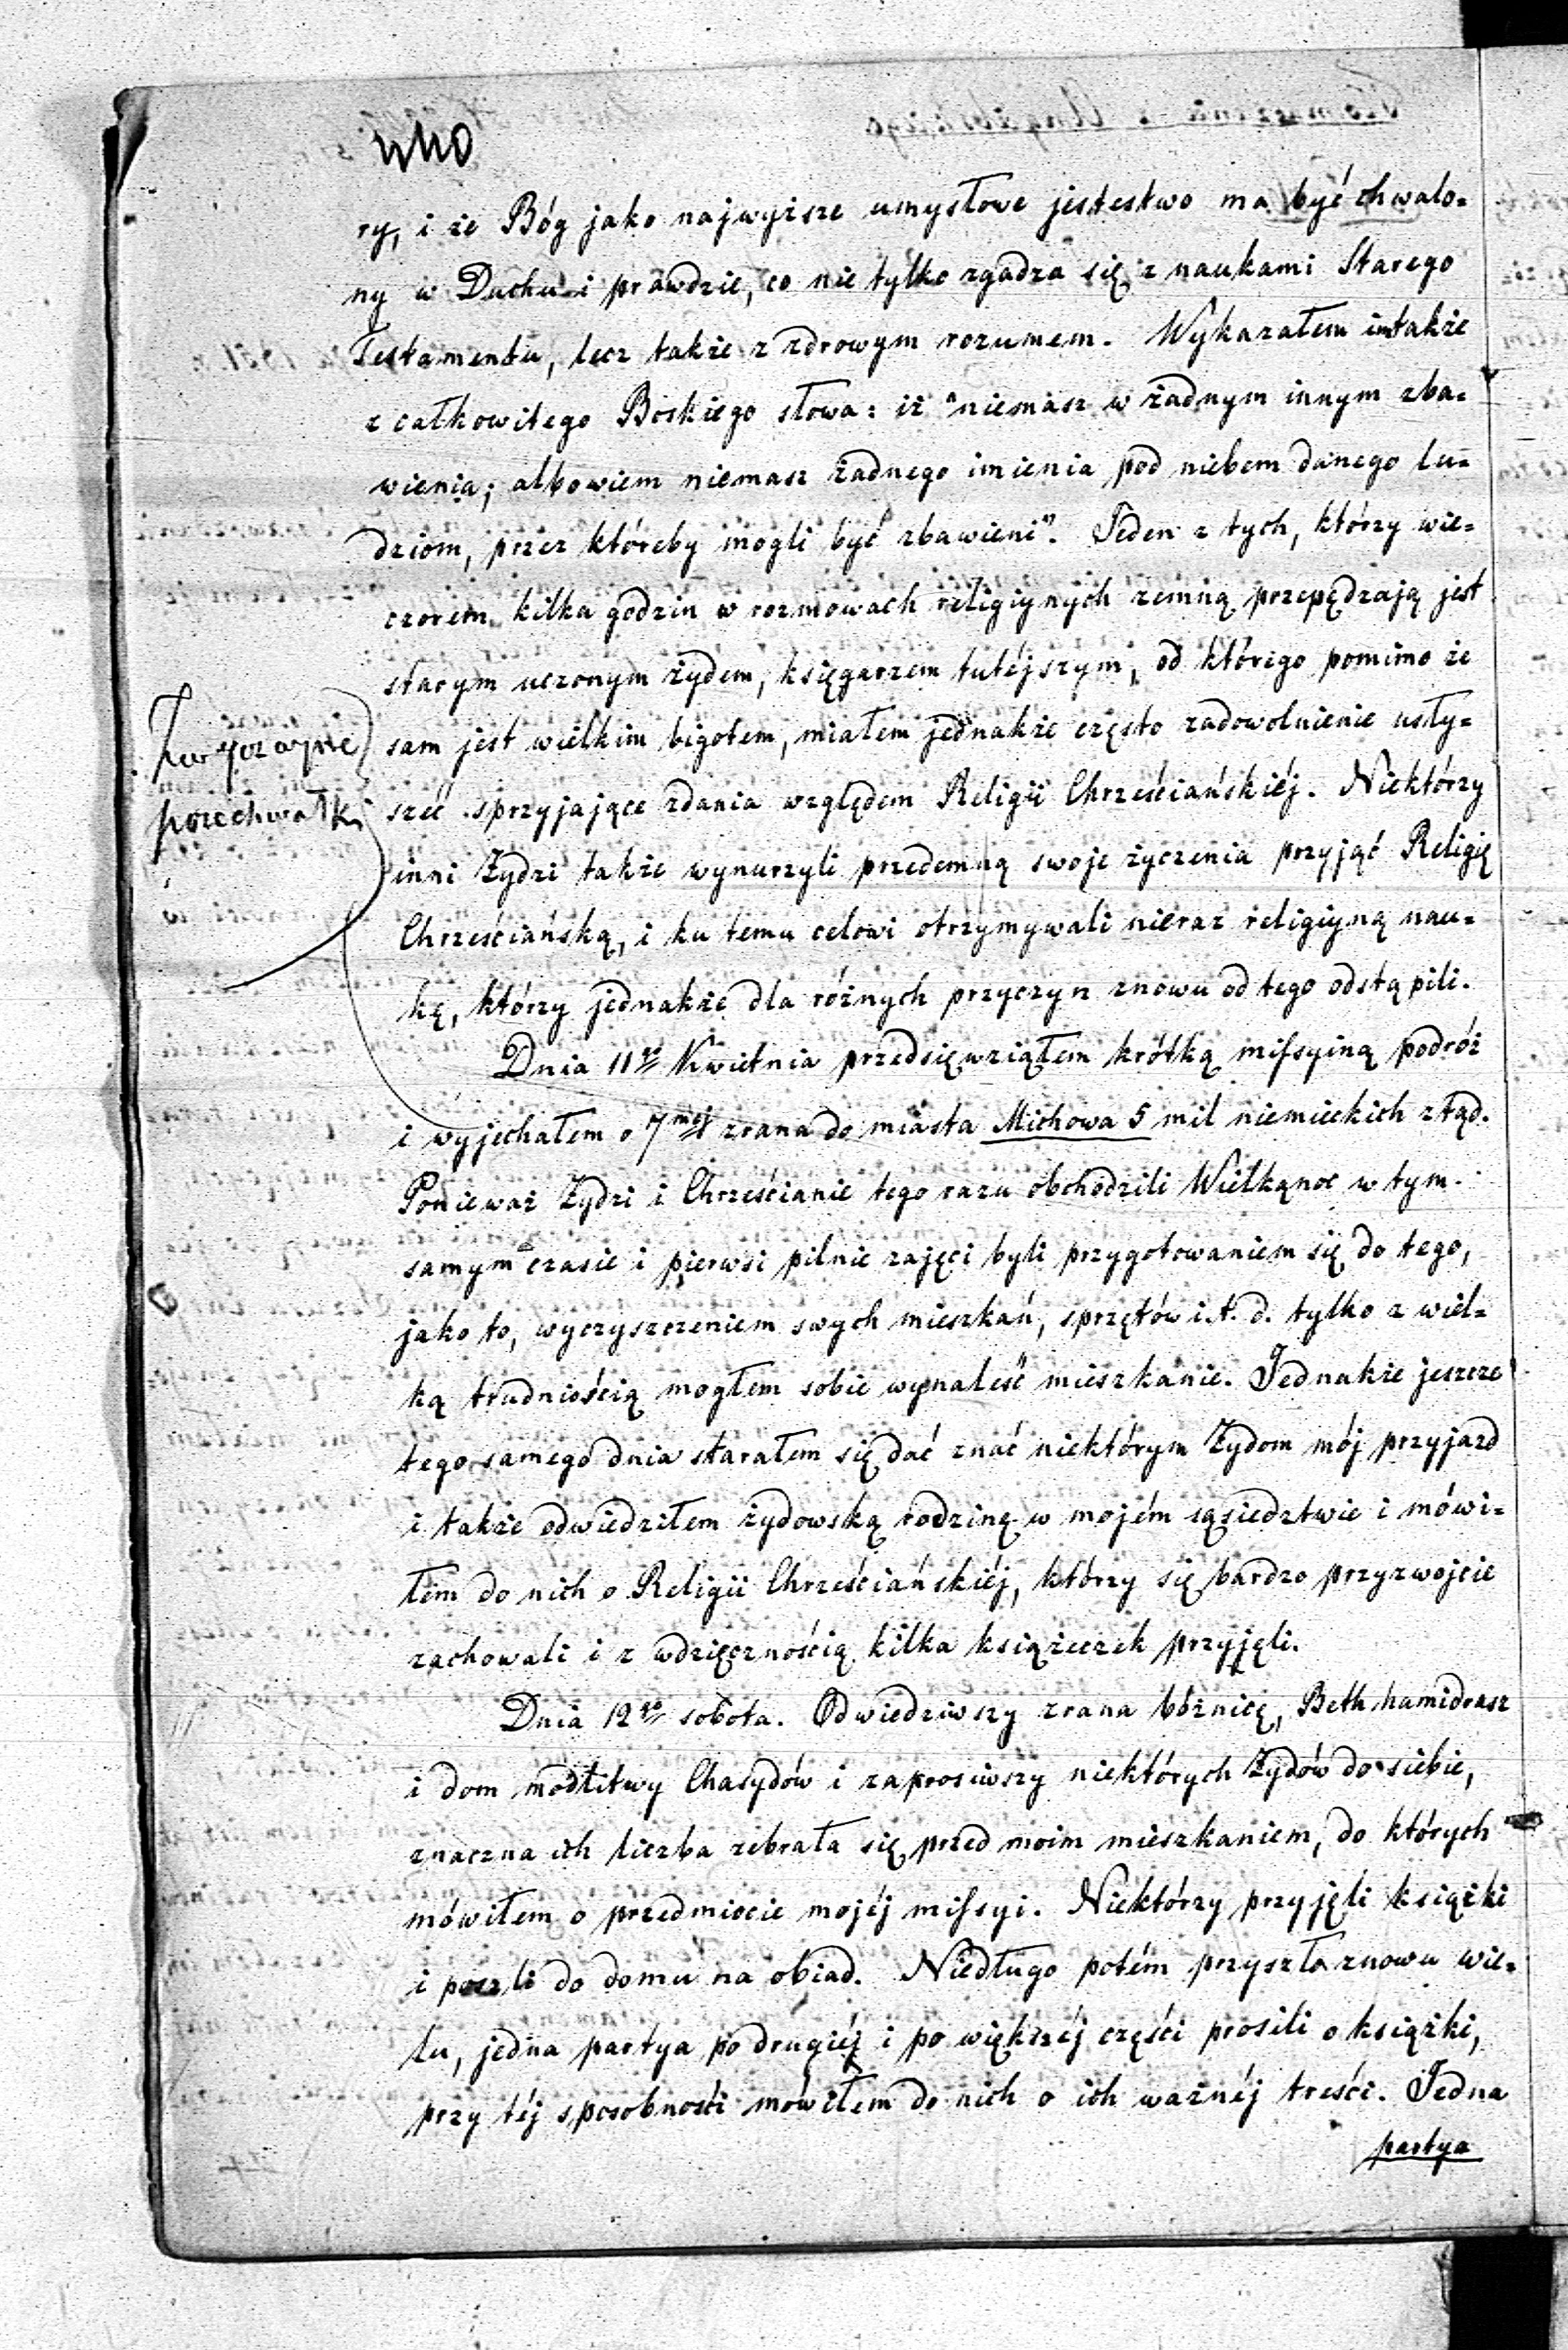 440
ry, i że Bóg jako najwyższe umysłowe jestestwo ma być chwalo-
ny w Duchu i prawdzie, co nie tylko zgadza się z naukami Starego
Testamentu, lecz także z zdrowym rozumem. Wykazałem im także
z całkowitego Boskiego słowa: iż "niemasz w żadnym innym zba-
wienia; albowiem niemasz żadnego imienia pod niebem danego lu-
dziom, przez któreby mogli być zbawieni". Jeden z tych, którzy wie-
czorem kilka godzin w rozmowach religiynych zemną przepędzają jest
starym uczonym żydem, księgarzem tutéjszym, od którego pomimo że
sam jest wielkim bigotem, miałem jednakże często zadowolnienie usły-
szeć sprzyjające zdania względem Religii Chrześciańskiéj. Niektórzy
inni Żydzi także wynurzyli przedemną swoje życzenia przyjąć Religię
Chrześciańską, i ku temu celowi otrzymywali nieraz religiyną nau-
kę, którzy jednakże dla różnych przyczyn znowu od tego odstąpili.
Zwyczajne
przechwałki
Dnia 11go Kwietnia przedsięwziąłem krótką missyiną podróż
i wyjechałem o 7méj zrana do miasta Michowa 5 mil niemieckich ztąd.
Ponieważ Żydzi i Chrześcianie tego razu obchodzili Wielkanoc w tym
samym czasie i pierwsi pilnie zajęci byli przygotowaniem się do tego,
jako to, wyczyszczeniem swych mieszkań, sprzętów i.t.d. tylko z wiel-
ką trudnością mogłem sobie wynaleść mieszkanie. Jednakże jeszcze
tego samego dnia starałem się dać znać niektórym Żydom mój przyjazd
i także odwiedziłem żydowską rodzinę w mojém sąsiedztwie i mówi-
łem do nich o Religii Chrześciańskiéj, którzy się bardzo przyzwojcie
zachowali i z wdzięcznością kilka książeczek przyjęli.
Dnia 12go sobota. Odwiedziwszy zrana bóżnicę, Beth hamidrasz
i dom modlitwy Chasydów i zaprosiwszy niektórych Żydów do siebie,
znaczna ich liczba zebrała się przed moim mieszkaniem, do których
mówiłem o przedmiocie mojéj missyi. Niektórzy przyjęli książki
i poszli do domu na obiad. Niedługo potém przyszło znowu wie-
lu, jedna partya po drugiéj i po większéj części prosili o książki,
przy téj sposobności mówiłem do nich o ich ważnéj treści. Jedna
partya